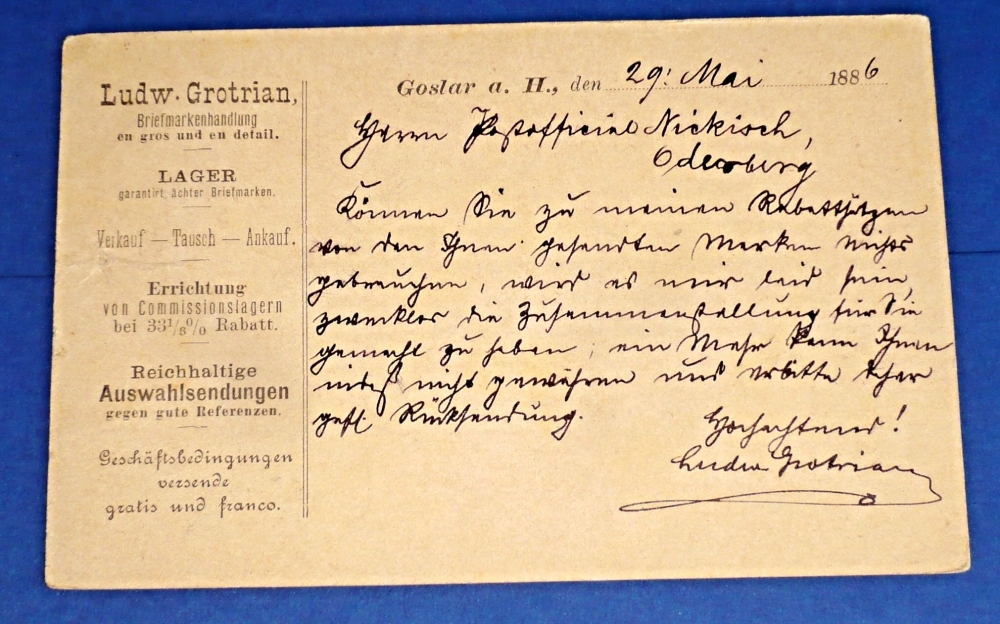 Ludw. Grotrian,
Briefmarkenhandlung
en gros und en detail.
LAGER
garantirt ächter Briefmarken.
Verkauf — Tausch — Ankauf.
Errichtung
von Commissionslagern
bei 33⅓% Rabatt.
Reichhaltige
Auswahlsendungen
gegen gute Referenzen.
Geschäftsbedingungen
versende
gratis und franco.
Goslar a. H., den 29. Mai 1886
Herrn Postofficial Nickisch,
Oderberg
Können Sie zu meinen Rabattsätzen
von den Ihnen gesendten Marken nichts
gebrauchen, wird es mir leid sein,
zwecklos die Zusammenstellung für Sie
gemacht zu haben; ein Mehr kann Ihnen
indeß nicht gewähren und erbitte daher
gefl. Rücksendung.
Hochachtend!
Ludw. Grotrian